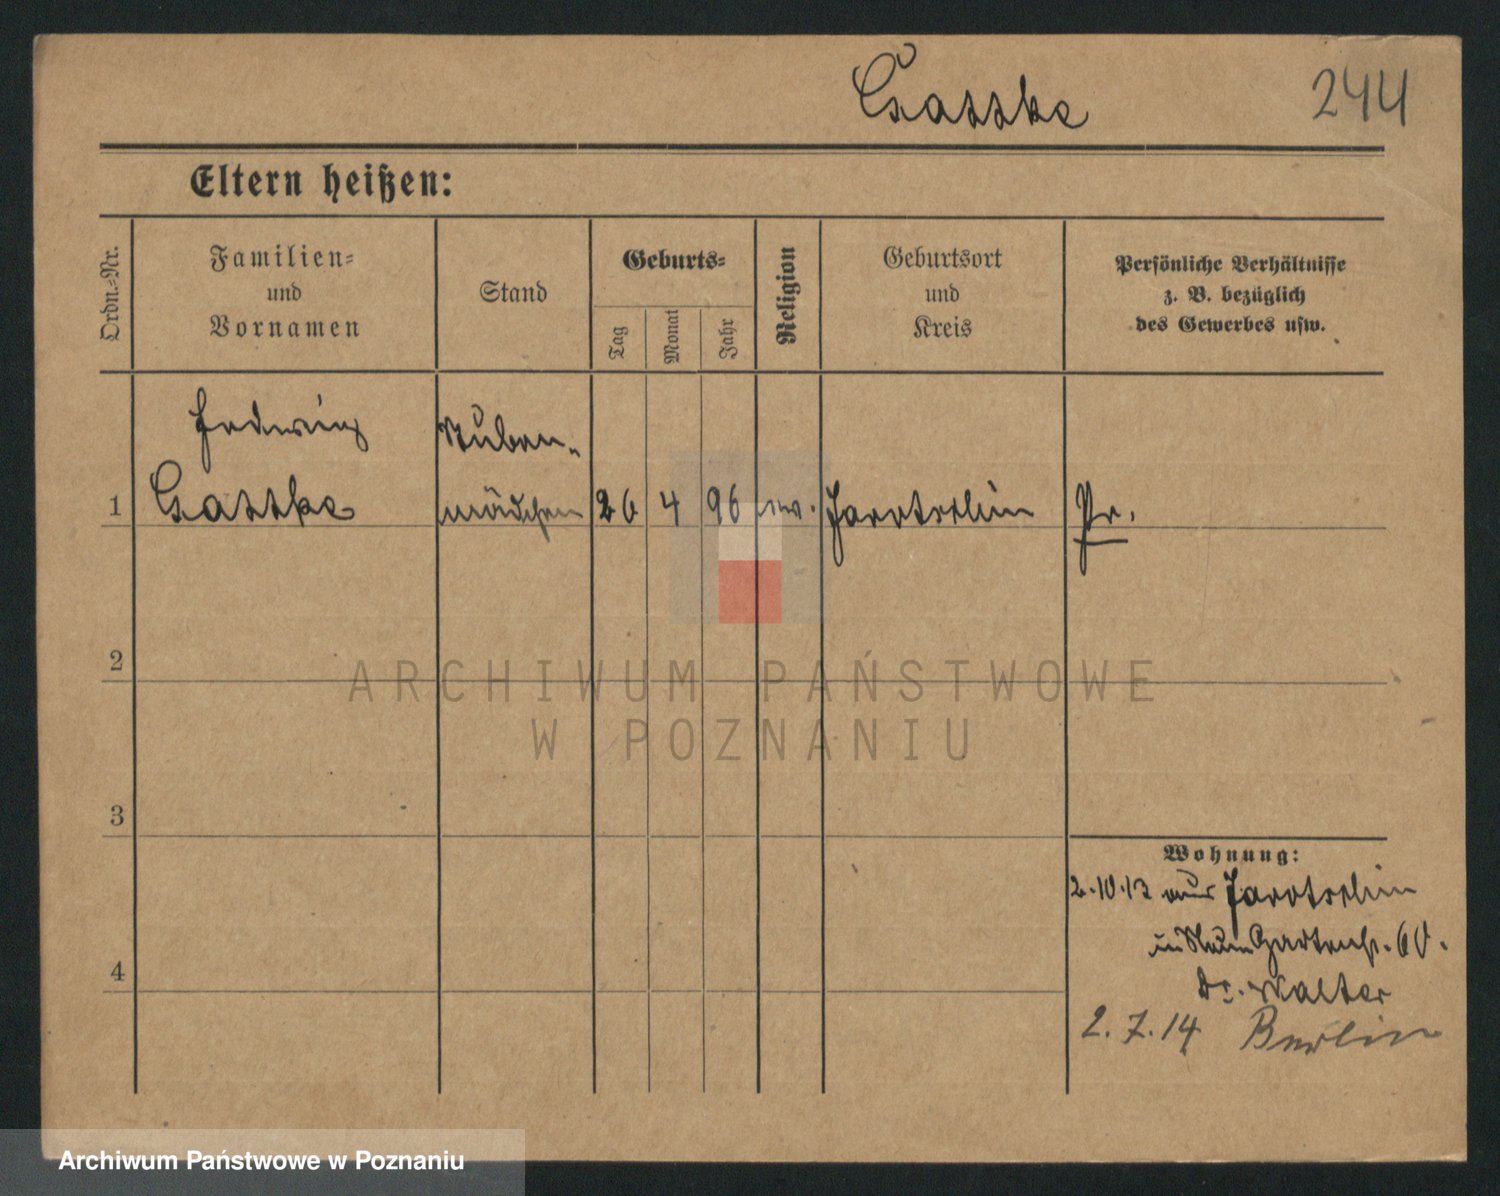 Gasske 244
Eltern heißen:
Ordn.-Nr.
Familien-
und
Vornamen
Stand
Geburts-
Tag
Monat
Jahr
Religion
Geburtsort
und
Kreis
Persönliche Verhältnisse
z. B. bezüglich
des Gewerbes usw.
Hedwig Stuben-
1 Gasske mädchen 26 4 96 ev. Jarotschin Pr.
2
ARCHIWUM PAŃSTWOWE
W POZNANIU
3
Wohnung:
2.10.13 aus Jarotschin
Gartenstr. 60.
4
Dr. Walter
2.7.14 Berlin
Archiwum Państwowe w Poznaniu